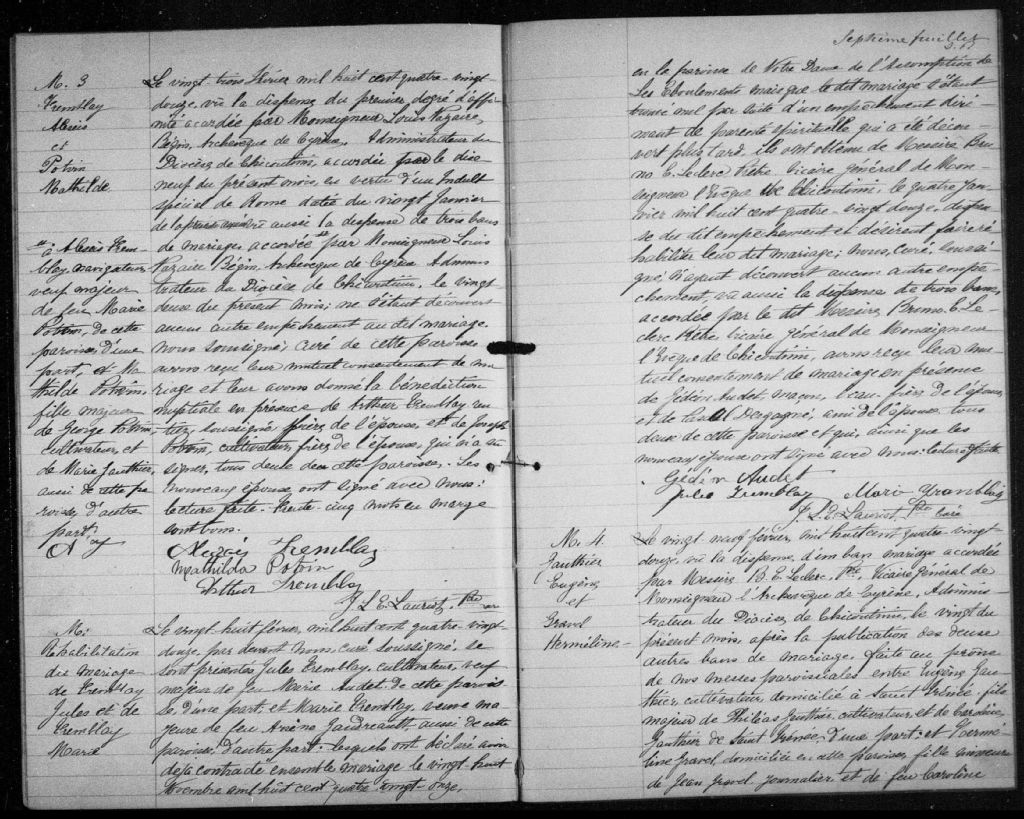 M. 3
Tremblay
Alexis
et
Potvin
Mathilde
à Alexis Trem-
blay, navigateur
veuf majeur
de feu Marie
Potvin, de cette
paroisse, d'une
part, et Ma-
thilde Potvin,
fille majeure
de George Potvin
cultivateur, et
de Marie Gauthier,
aussi de cette pa-
roisse, d'autre
part.
Le vingt trois février mil huit cent quatre-vingt-
douze, vu la dispense du premier degré d'affi-
nité acordée par Monseigneur Louis Nazaire,
Bégin, Archevêque de Cyrène, Administrateur du
Diocèse de Chicoutimi, accordée le dix-
neuf du présent mois, en vertu d'un Indult
spécial de Rome daté du vingt Janvier
de la aussi la dispense de trois bans
de mariage, accordée par Monseigneur Louis
Nazaire Bégin, Archevêque de Cyrène Adminis
trateur du Diocèse de Chicoutimi, le vingt
deux du présent mois; ne s'étant découvert
aucun autre empêchement au dit mariage.
nous soussigné, curé de cette paroisse
avons reçu leur mutuel consentement de ma
riage et leur avons donné la bénédiction
nuptiale en présence de Arthur Tremblay
soussigné de l'épouse, et de Joseph
Potvin, cultivateur, frère de l'épouse, qui n'a su
signer, tous deux de cette paroisse. Les
nouveaux époux ont signé avec nous:
lecture faite. Trente-cinq mots en marge
sont bons.
Alexis Tremblay
Mathilda Potvin
Arthur Tremblay
J. L. E. Lauriot, Ptre curé
M:
Réhabilitation
du mariage
de Tremblay
Jules et de
Tremblay
Marie
Le vingt huit février, mil huit cent quatre-vingt-
douze, par devant nous, curé soussigné, se
sont présentés Jules Tremblay, cultivateur, veuf
majeur de feu Marie Audet, de cette parois
se, d'une part, et Marie Tremblay, veuve ma
jeure de feu Gaudreault, aussi de cette
paroisse, d'autre part: lesquels ont déclaré avoir
déjà contracté ensemble mariage le vingt-huit
Novembre mil huit cent quatre vingt-onze,
Septième feuillet
en la paroisse de Notre Dame de l'Assomption de
Les Éboulements mais que le dit mariage s'étant
trouvé nul par suite d'un empêchement diri-
mant de parenté spirituelle qui a été décou-
vert plus tard, ils ont obtenu de Messire Bru-
no E. Leclerc Prêtre, Vicaire Général de Mon-
seigneur l'Evêque de Chicoutimi, le quatre Jan-
vier mil huit cent quatre-vingt douze, dispen-
se du dit empêchement et désirent faire ré-
habiliter leur dit mariage; nous, curé, soussi-
gné, n'ayant découvert aucun autre empê-
chement, vu aussi la dispense de trois bans,
accordée par le dit Messire, Bruno E. Le-
clerc Prêtre, Vicaire Général de Monseigneur
l'Evêque de Chicoutimi, avons reçu leur mu-
tuel consentement de mariage, en présence
de Gédéon Audet, maçon, beau-frère de l'époux,
et de Dégagné, ami de l'époux, tous
deux de cette paroisse et qui, ainsi que les
nouveaux époux ont signé avec nous: lecture faite
Gédéon Audet
Jules Tremblay Marie Tremblay
J. L. E. Lauriot, Ptre curé
M. 4.
Gauthier
Eugène
et
Gravel
Herméline
Le vingt neuf février, mil huit cent quatre-vingt
douze, vu la dispense d'un ban mariage accordée
par Messire B. E. Leclerc, Ptre, Vicaire Général de
Monseigneur l'Archevêque de Cyrène, Adminis-
trateur du Diocèse, de Chicoutimi, le vingt du
présent mois, après la publication des deux
autres bans de mariage, faite au prône
de nos messes paroissiales entre Eugène Gau
thier, cultivateur, domicilié à Saint Irénée, fils
majeur de Philéas Gauthier, cultivateur, et de Caroline
Gauthier de Saint Irénée, d'une part: et Hermé-
line Gravel, domiciliée en cette paroisse, fille mineure
de Jean Gravel, journalier, et de feu Caroline